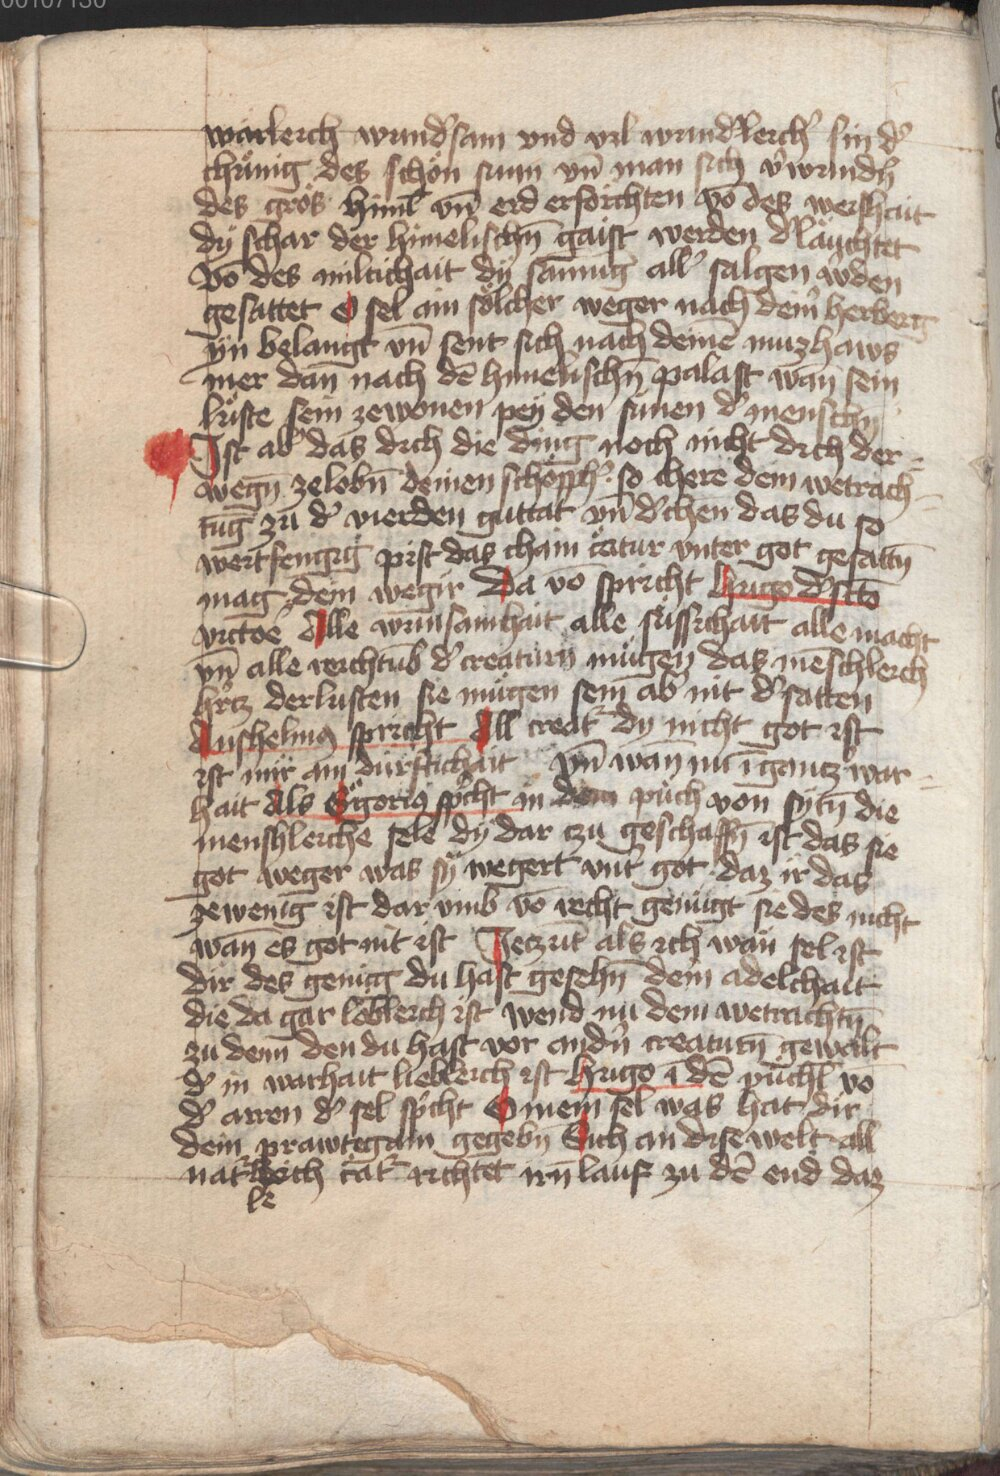 00107130
warleich wunds̉sam vnd vil wund̉leich̾ sin d̾
chünig des schön sunn vn̄ man sich v̾wund̾n
des grös himl̄ vn̄ erd erforchten vō des weishait
dÿ schar der himelischn̄ gaist werden d̾läuchtet
vō des miltichait dÿ sāmūg all̾ salgen w̾den
gesattet O sel ain sölcher weger nach deim̾ herberg
ÿn belangt vn̄ sent sich nach deinē muzhaws
mer dan̄ nach dē himelischn̄ palast wan̄ sein
lüste sein ze wonen peÿ den sünen d̾ menschn̄
Ist ab̾ das dich die ding noch nicht dich der
wegn̄ ze lobn̄ deinen schöpph̾ so chere dein wetrach
tūg zu d̾ vierden guttat vn̄ d̾chen das du so
wertfengig pist das chain c̾atur vnter got gesattn̄
mag dein wegir Da vō spricht Hugo d̾ sctō
victoē Alle wunsamhait alle süssichait alle macht
vn̄ alle reichtūb d̾ creaturn̄ mügen das mēschleich
h̾tz derlusten sie mügen sein ab̾ nit d̾satten
Anshelmꝰ spricht All creat͛ dy nicht got ist
ist mir ain dürftichait vn̄ wan̄ nu ī gantz war
hait Als Gᵉgoriꝯ sp̾cht in dem püch von sytn̄ die
menschleiche sele dÿ dar tzu geschaffn̄ ist das sie
got weger was sÿ wegert vnt̾ got daz ir das
ze wenig ist dar vmb vō recht genügt sie des nicht
wan̄ es got nit ist Ietzūt als ich wän sel ist
dir des genüg du hast gesehn̄ dein adelchait
die da gar lobleich ist wend nu dein wetrachtn̄
zu denn den du hast vor andn̾ creaturn̄ gewält
d̾ in warhait liebleich ist Hugo ī dē püchl̄ vō
d̾ arren d̾ sel sp̾cht O mein sel was hat dir
dein prawtegam gegebn̄ Sich an dise welt all
nat͛leich cat͛ richtet irn̄ lauf zu dē end daz
le